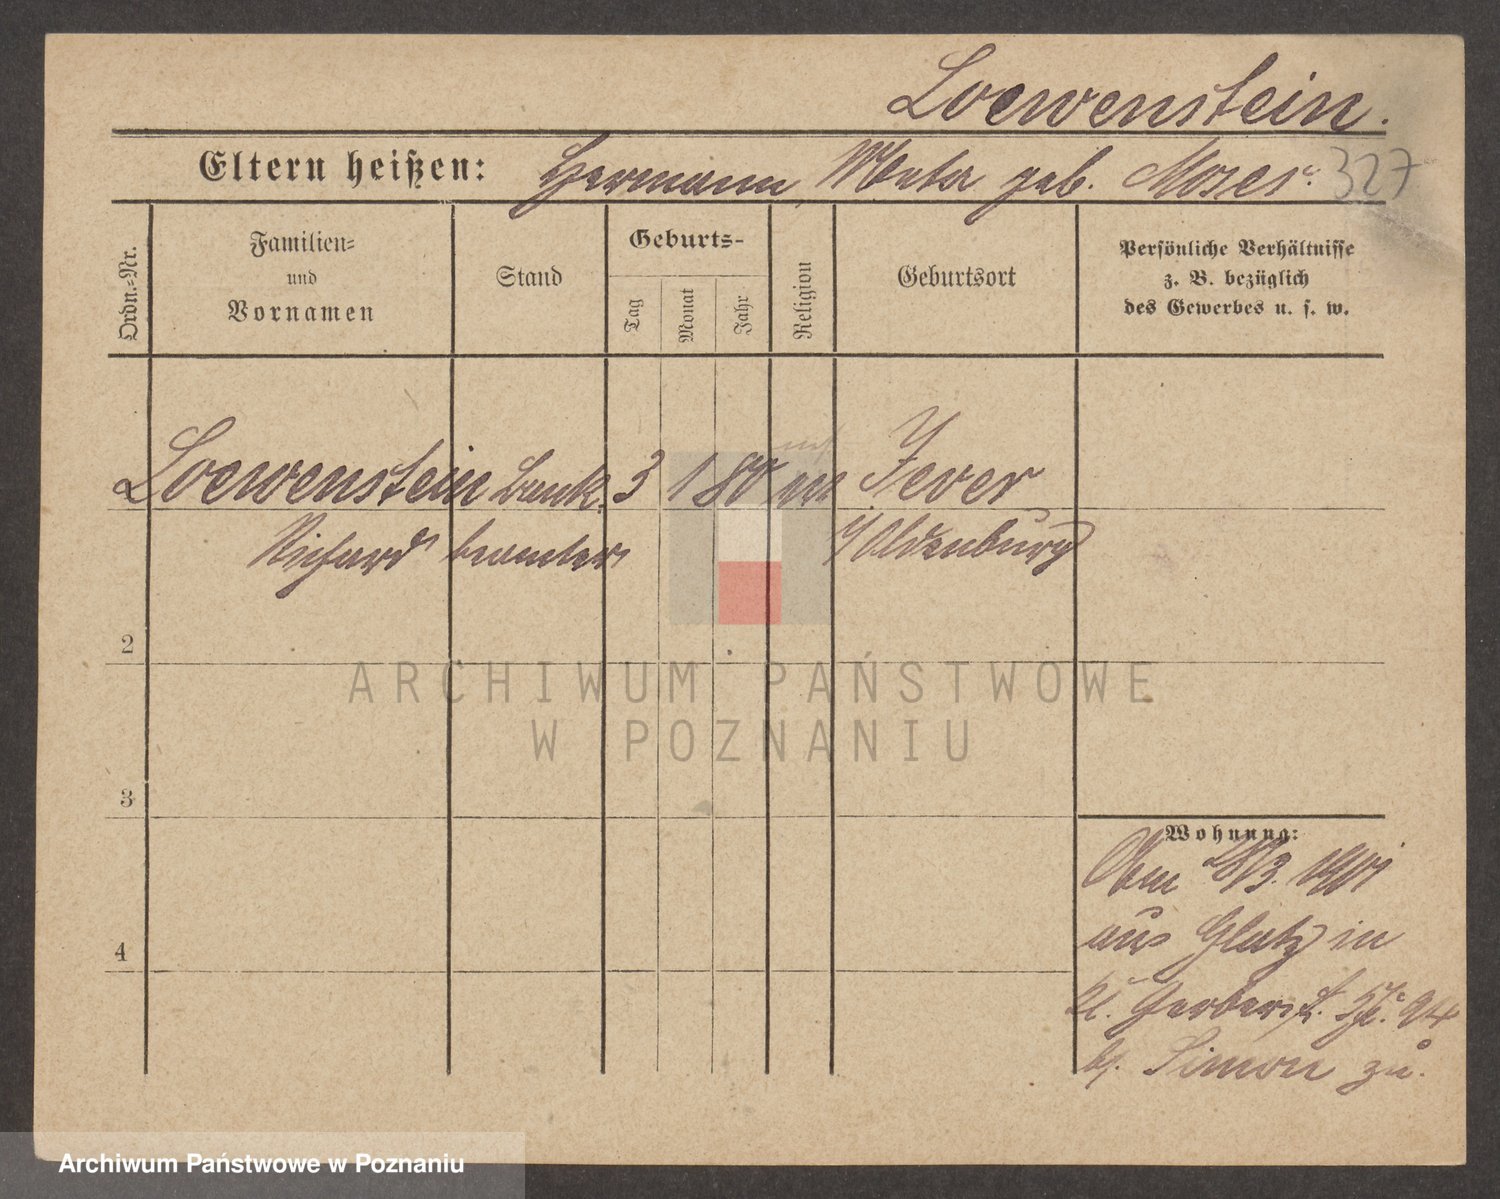 Loewenstein.
Eltern heißen: Hermann Meta geb. Moses. 327
Ordn.-Nr.
Familien=
und
Vornamen
Stand
Geburts-
Tag
Monat
Jahr
Religion
Geburtsort
Persönliche Verhältnisse
z. B. bezüglich
des Gewerbes u. s. w.
Loewenstein Bank 3 1 80 m Jever
Richard beamter i/Oldenburg
2
3
4
Wohnung:
1901
aus Glatz in
kl. Gerberst. 94
b. Simon zu.
ARCHIWUM PAŃSTWOWE
W POZNANIU
Archiwum Państwowe w Poznaniu